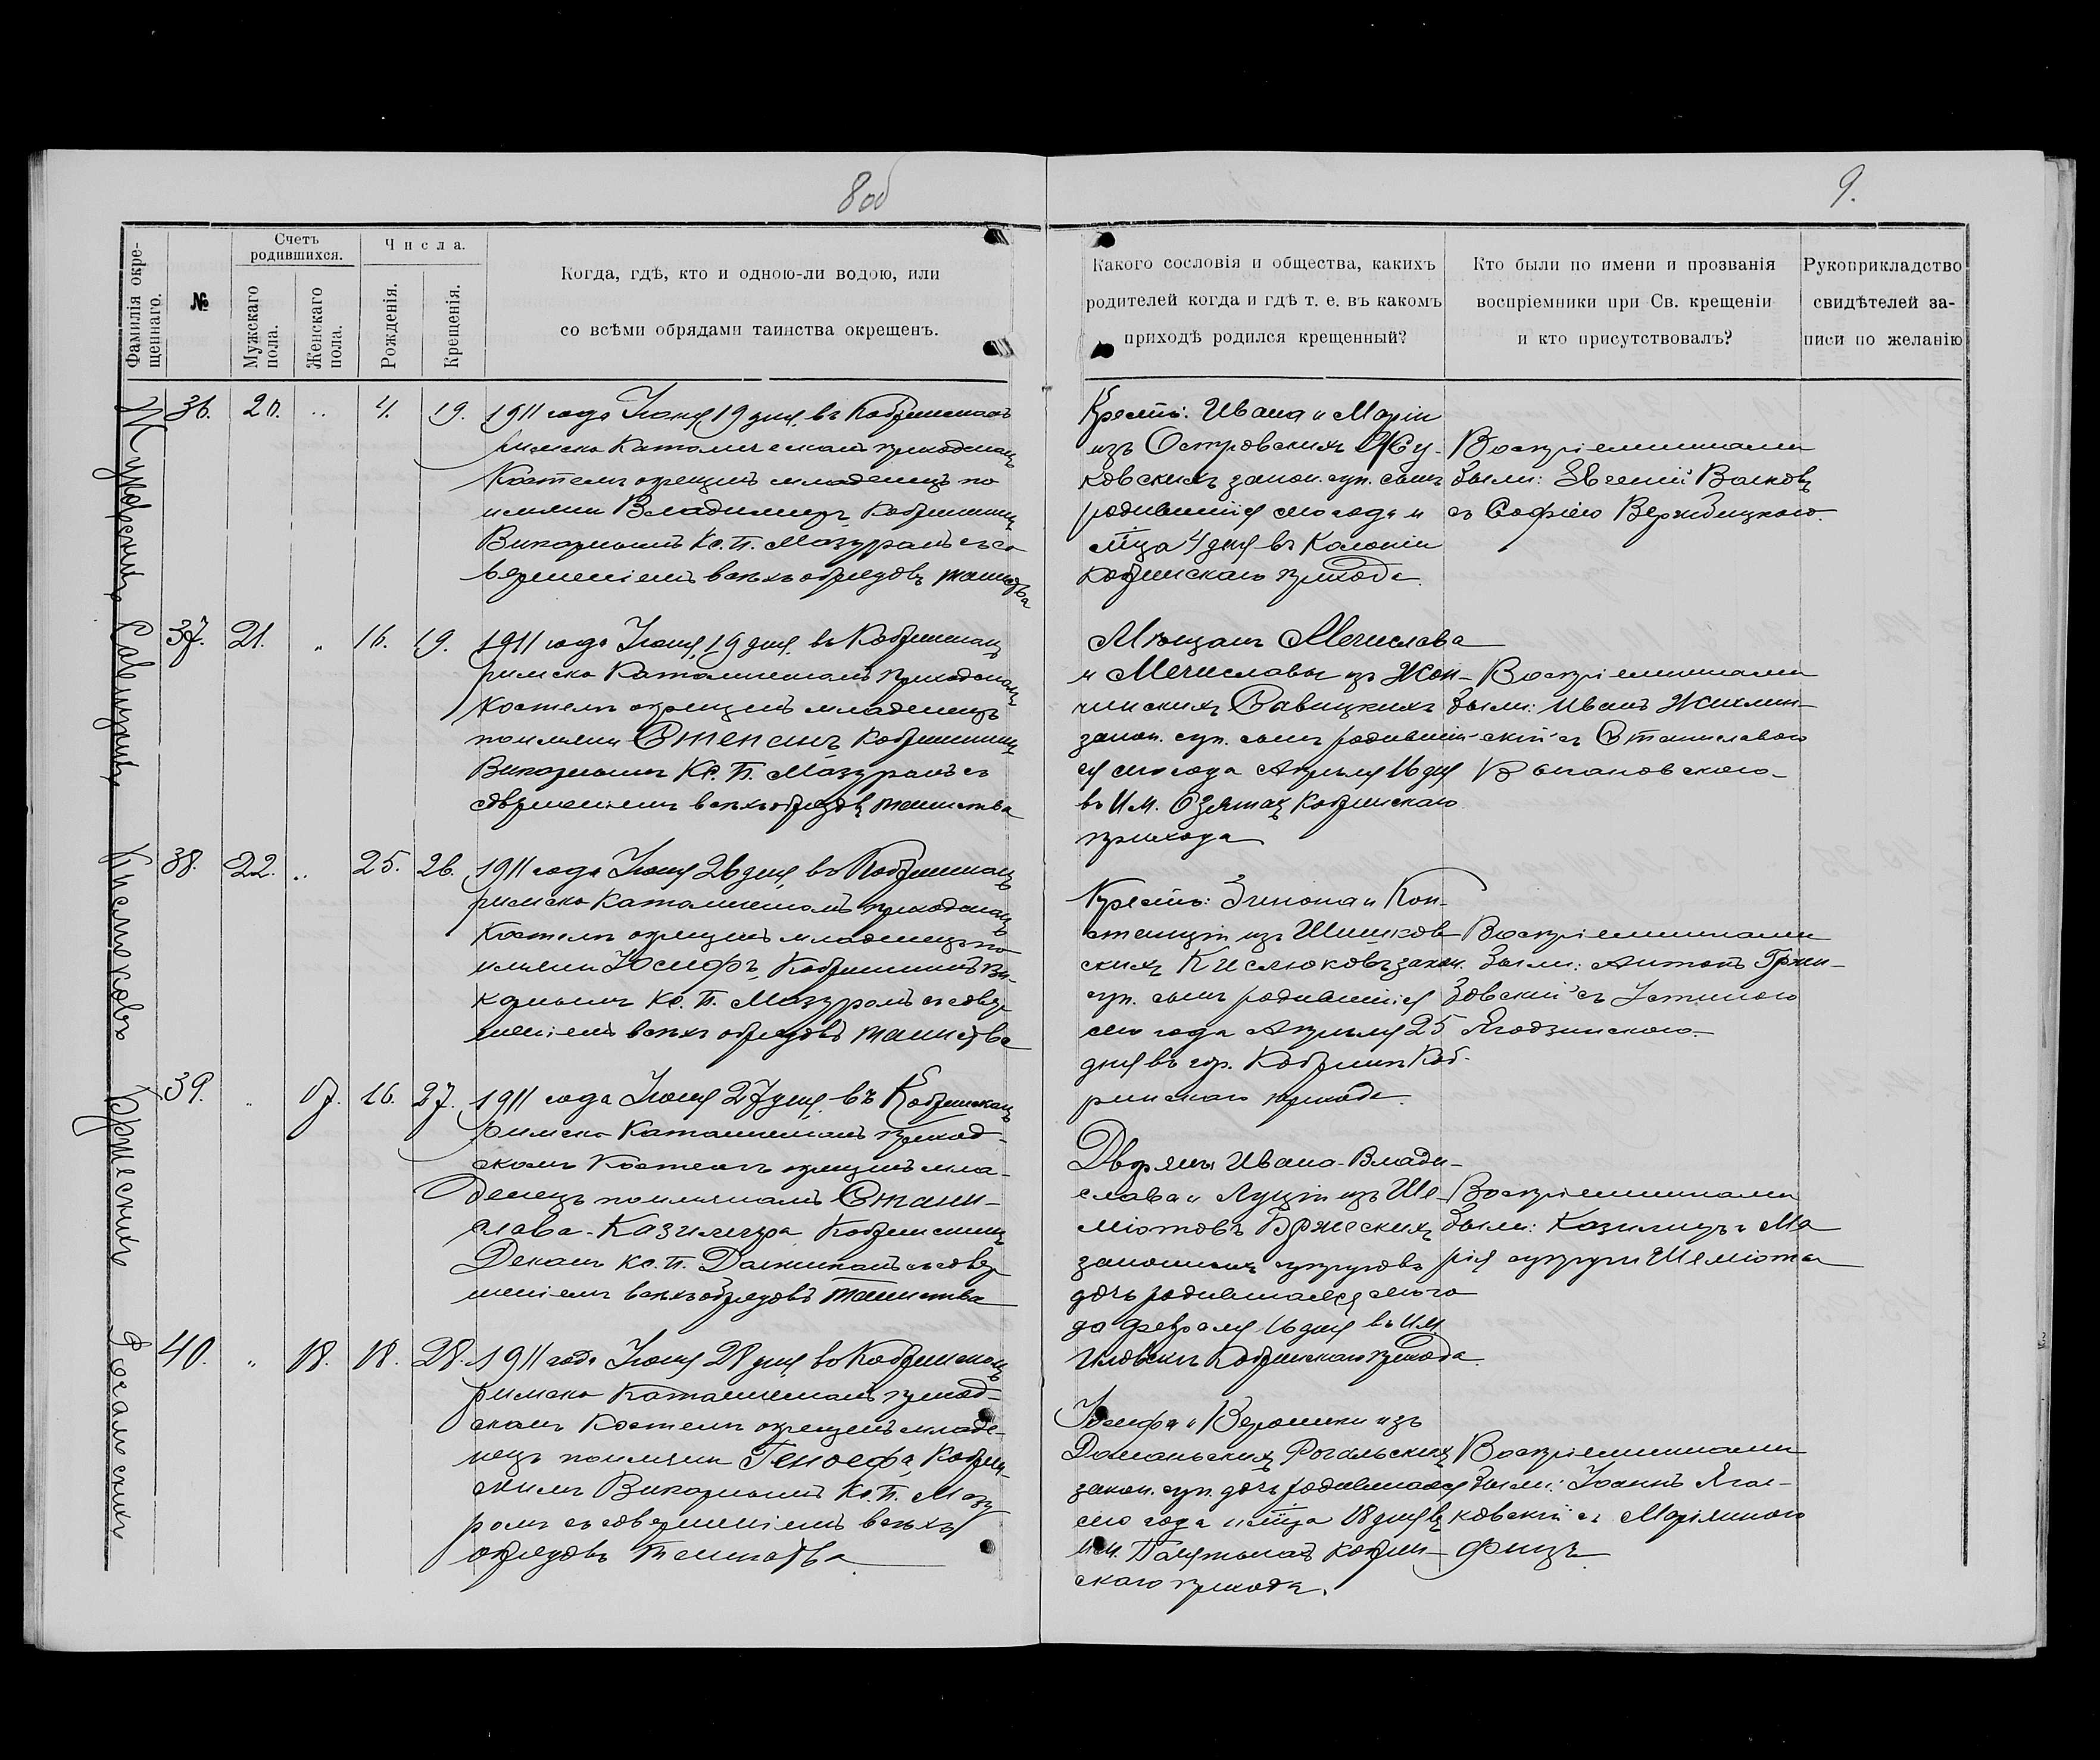 8 об
9.
Фамилія окре-
щеннаго.
№
Счетъ
родившихся.
Мужскаго
пола.
Женскаго
пола.
Числа.
Рожденія.
Крещенія.
Когда, гдѣ, кто и одною-ли водою, или
со всѣми обрядами таинства окрещенъ.
Какого сословія и общества, какихъ
родителей когда и гдѣ т. е. въ какомъ
приходѣ родился крещенный?
Кто были по имени и прозванія
воспріемники при Св. крещеніи
и кто присутствовалъ?
Рукоприкладство
свидѣтелей за-
писи по желанію
Жуковскій
36. 20. .. 4. 19.
1911 года Іюня 19 дня въ Кобринскомъ
римско Католическомъ приходскомъ
Костелѣ окрещенъ младенецъ по
имени Владимиръ Кобринскимъ
Викарнымъ Кс. П. Мазуромъ съ со
вершеніемъ всѣхъ обрядовъ таинства
Крестъ: Ивана и Маріи
изъ Островскихъ Жу-
ковскихъ закон. суп. сынъ
родившійся сего года и
мца 4 дня въ Колоніи
Кобринскаго прихода.
Воспріемниками
были: Евгеній Волковъ
съ Софіею Вержбицкою.
Савицкій
37. 21. „ 16. 19.
1911 года Іюня 19 дня въ Кобринскомъ
римско Католическомъ приходскомъ
Костелѣ окрещенъ младенецъ
по имени Степанъ Кобринскимъ
Викарнымъ Кс. П. Мазуромъ съ
совершеніемъ всѣхъ обрядовъ таинства
Мѣщанъ Мечислава
и Мечиславы изъ Жон-
чинскихъ Савицкихъ
закон. суп. сынъ родившій-
ся сего года Апрѣля 16 дня
въ Им. Озятахъ Кобринскаго
прихода
Воспріемниками
были: Иванъ Жихлин-
скій съ Станиславою
Кислюковъ
38. 22. .. 25. 26.
1911 года Іюня 26 дня въ Кобринскомъ
римско Католическомъ приходскомъ
Костелѣ окрещенъ младенецъ по
имени Іосифъ, Кобринскимъ Ви-
карнымъ Кс. П. Мазуромъ съ совер
шеніемъ всѣхъ обрядовъ таинства
Крестъ: Зинона и Кон-
станціи изъ Шишков
скихъ Кислюковъ закон.
суп. сынъ родившійся
сего года Апрѣля 25
дня въ гор. Кобринѣ Коб-
ринскаго прихода.
Воспріемниками
были: Антонъ Гржи-
бовскій съ Устиною
Ягодзинскою.
Бржескихъ
39. „ 17. 16. 27.
1911 года Іюня 27 дня въ Кобринскомъ
римско Католическомъ приход-
скомъ Костелѣ окрещенъ мла-
денецъ по именамъ Стани-
слава-Казимира Кобринскимъ
Декан Кс. П. съ совер
шеніемъ всѣхъ обрядовъ таинства
Дворянъ Ивана-Влади-
слава и Луціи изъ Ше-
міотовъ Бржескихъ
законныхъ супруговъ
дочь родившаяся сего го
да Февраля 16 дня въ им.
Иловскъ Кобринскаго прихода.
Воспріемниками
были: Казимиръ и Ма
рія супруги Шеміоты
Рогальскихъ
40. „ 18. 18. 28.
1911 года Іюня 28 дня въ Кобринскомъ
римско Католическомъ приход-
скомъ Костелѣ окрещенъ младе-
нецъ по имени Геноефа, Кобрин-
скимъ Викарнымъ Кс. П. Мазу
ромъ съ совершеніемъ всѣхъ
обрядовъ таинства.
Іосифа и Вероники изъ
Доманьскихъ Рогальскихъ
закон. суп. дочь родившаяся
сего года и мца 18 дня въ
им. Кобрин-
скаго прихода.
Воспріемниками
были: Іоаннъ Ягел-
ковскій съ Маріянною
Фицъ